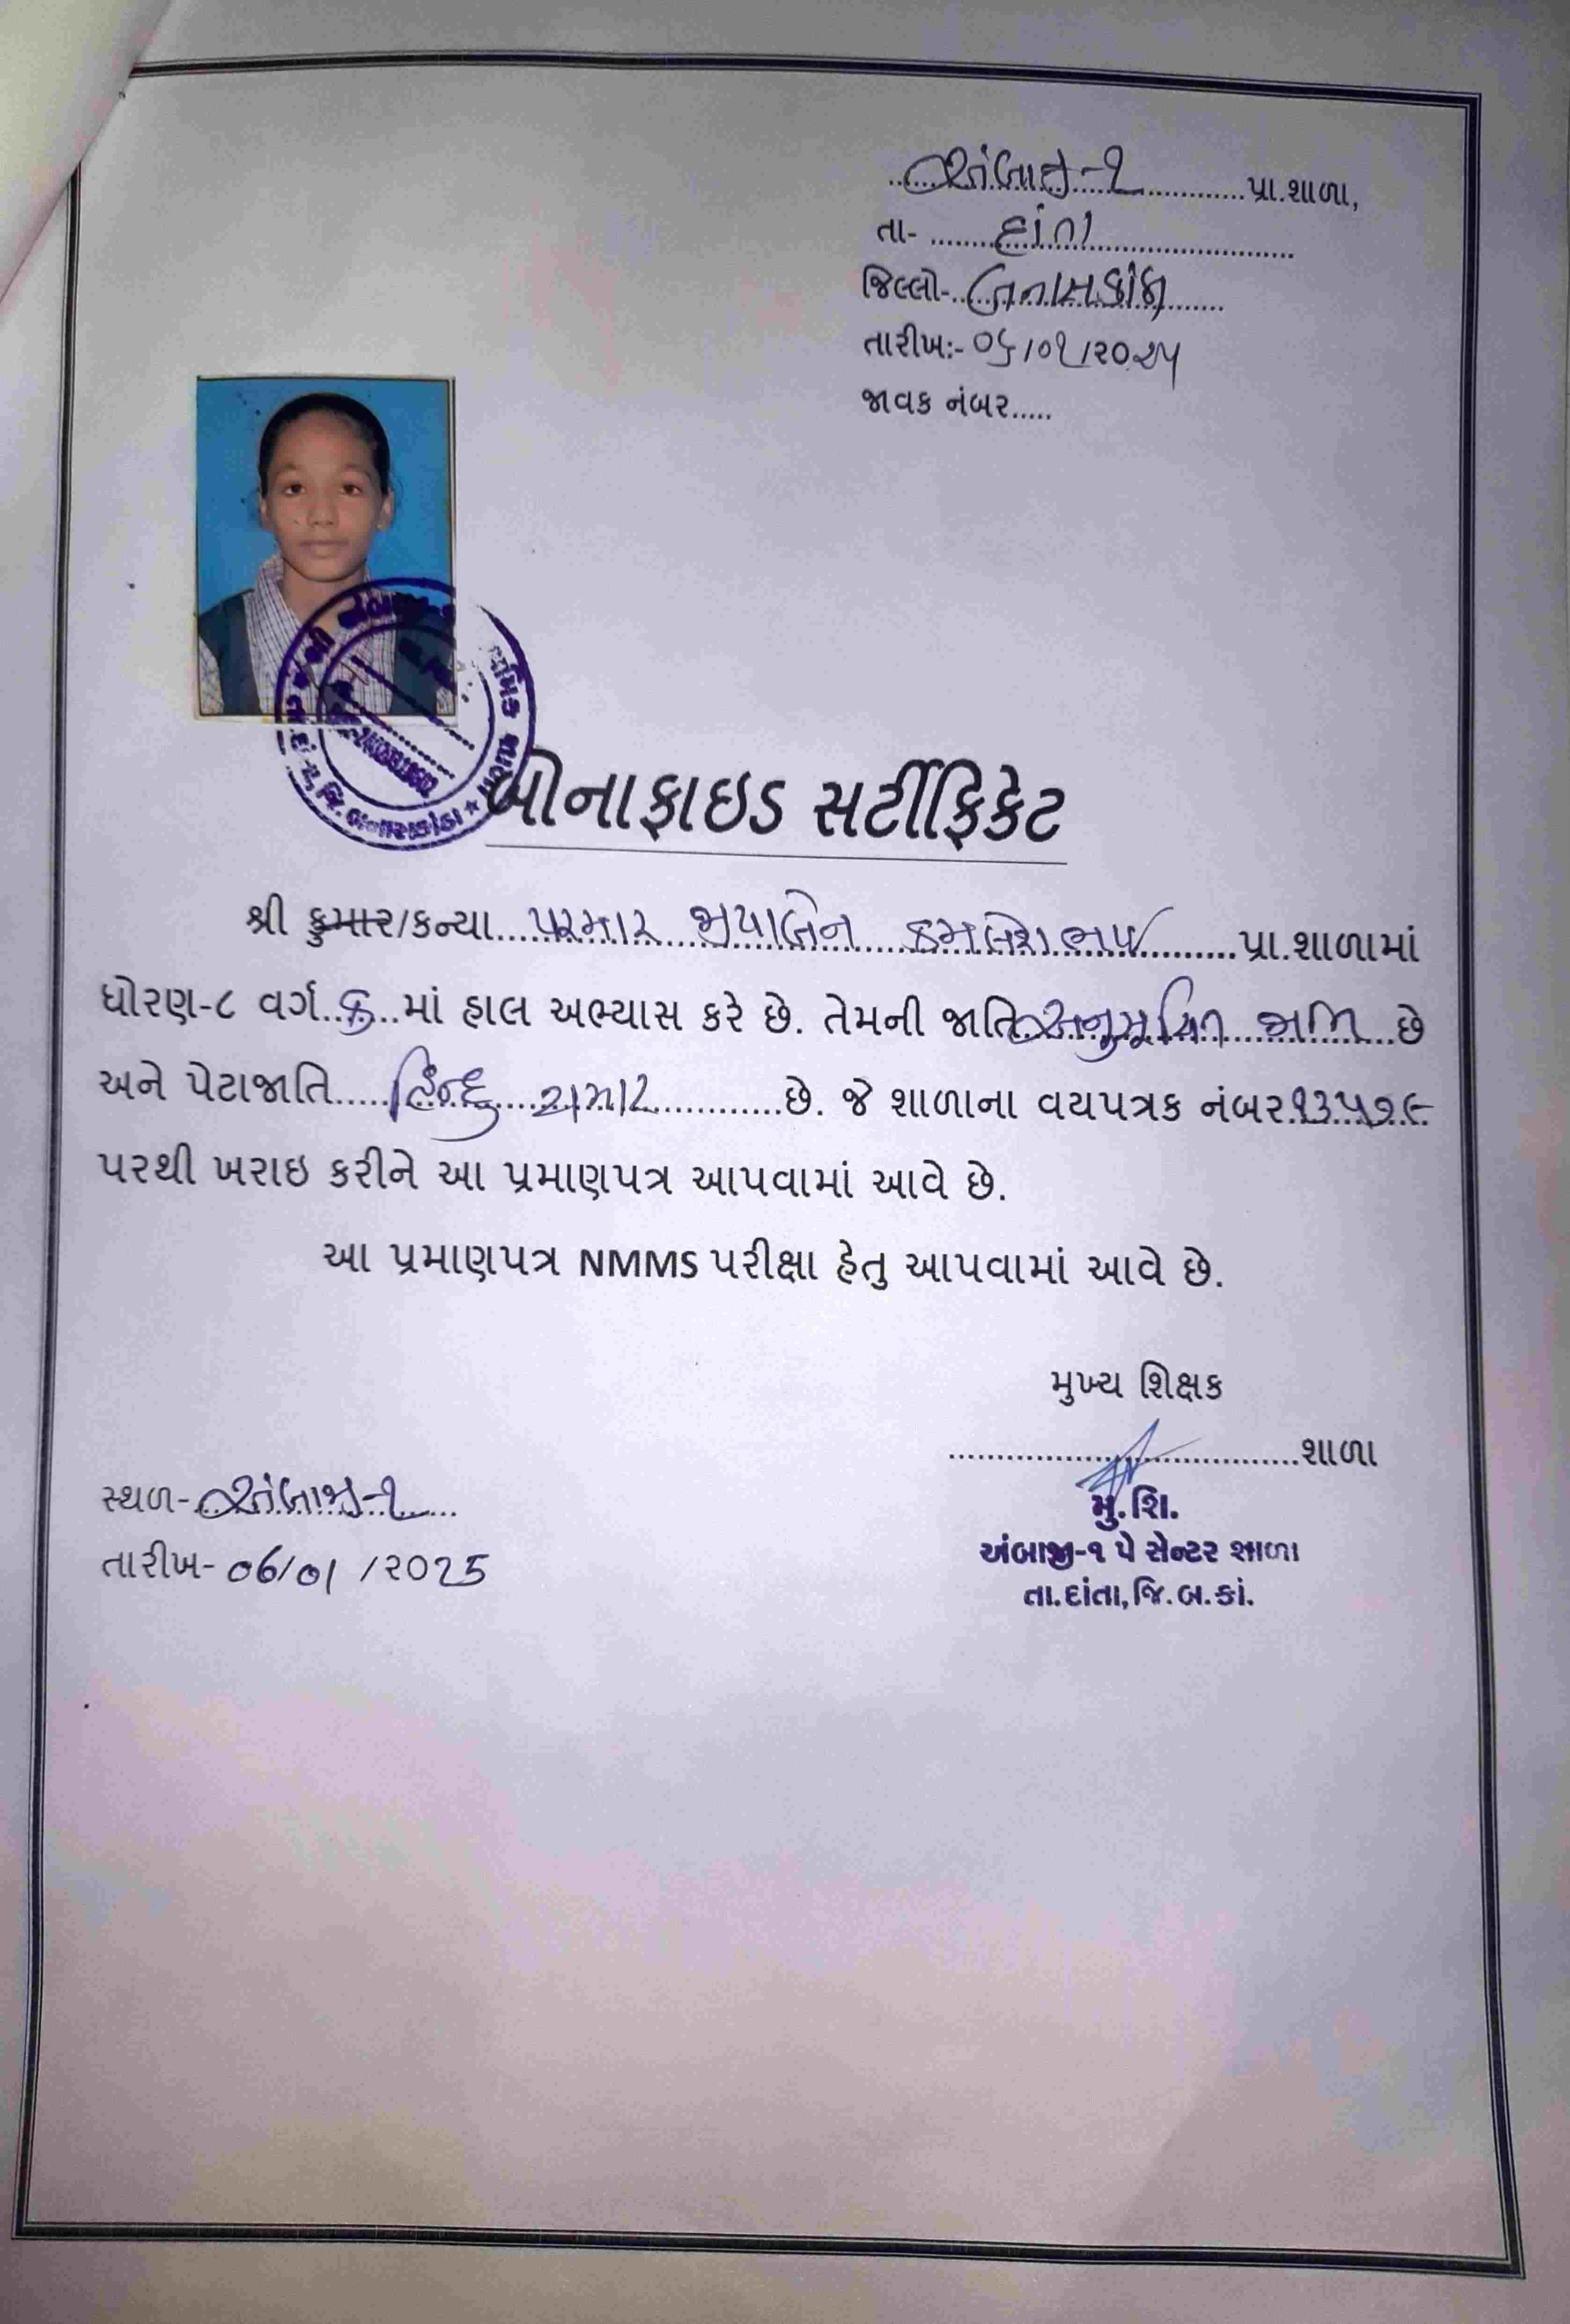 અંબાજી-૧ પ્રા.શાળા,
તા- દાંતા
જિલ્લો- બનાસકાંઠા
તારીખ:- ૦૬/૦૧/૨૦૨૫
જાવક નંબર.....
બોનાફાઇડ સર્ટીફિકેટ
શ્રી કુમાર/કન્યા પરમાર જયાબેન કમલેશભાઈ પ્રા.શાળામાં
ધોરણ-૮ વર્ગ ક માં હાલ અભ્યાસ કરે છે. તેમની જાતિ અનુસૂચિત જાતિ છે
અને પેટાજાતિ હિન્દુ ચમાર છે. જે શાળાના વયપત્રક નંબર ૧૩૫૭૯
પરથી ખરાઇ કરીને આ પ્રમાણપત્ર આપવામાં આવે છે.
આ પ્રમાણપત્ર NMMS પરીક્ષા હેતુ આપવામાં આવે છે.
મુખ્ય શિક્ષક
શાળા
મુ.શિ.
સ્થળ- અંબાજી-૧
અંબાજી-૧ પે સેન્ટર શાળા
તારીખ- 06/01/૨૦25
તા.દાંતા,જિ.બ.કાં.